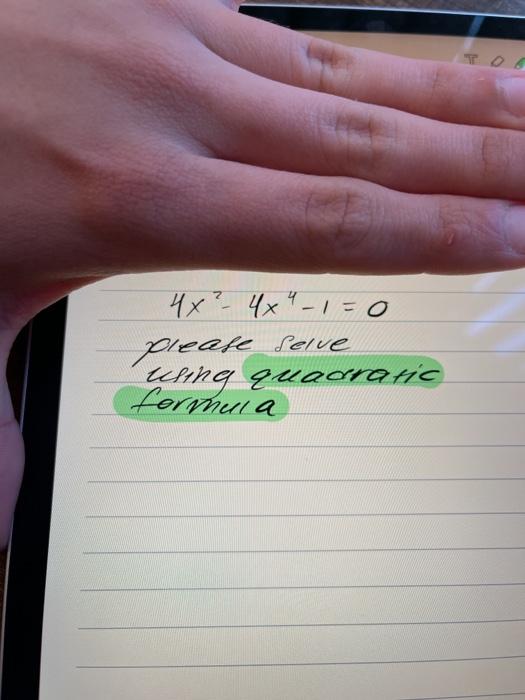 4x² - 4x⁴ - 1 = 0
please solve
using quadratic
formula